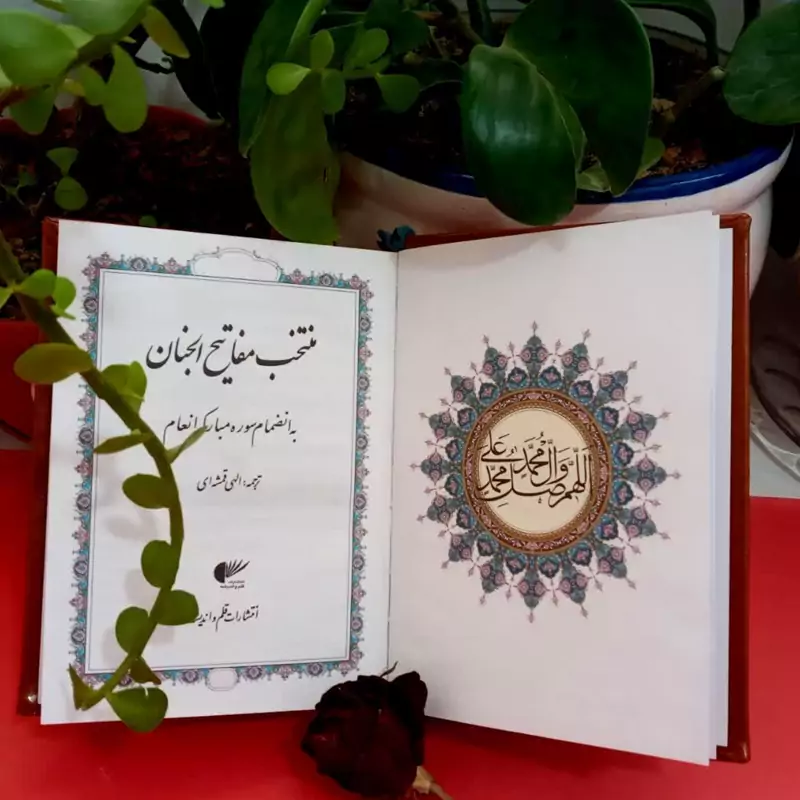 منتخب مفاتیح الجنان
به انضمام سوره مبارکه انعام
ترجمه: الهی قمشه‌ای
انتشارات قلم و
اللهم صل علی محمد وآل محمد